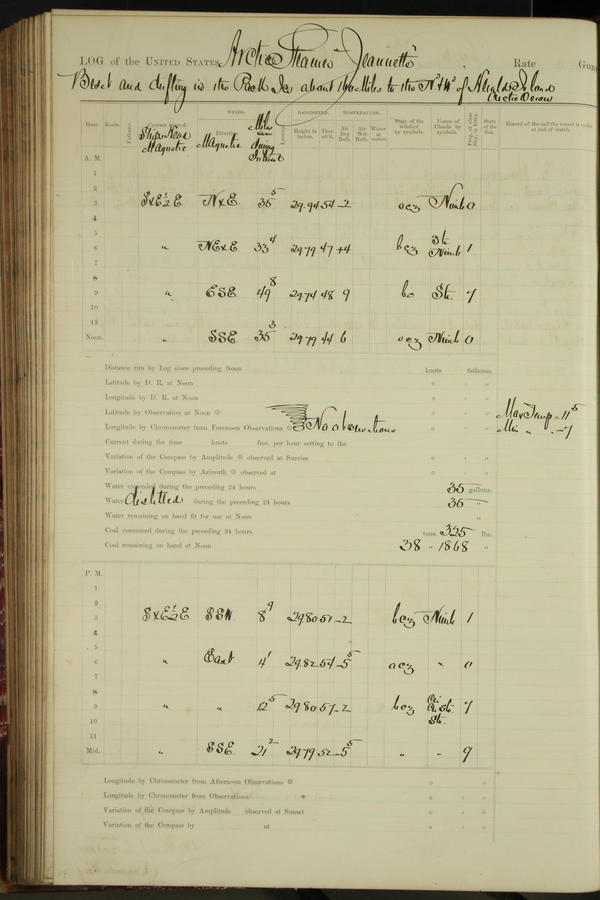 LOG of the UNITED STATES Arctic Steamer "Jeannette", Rate Gun
Beset and drifting in the Pack Ice about 140 Miles to the N'd & W'd of Herald Island
Arctic Ocean
WINDS. BAROMETER. TEMPERATURE.
Hour. Knots. Fathoms. Courses steered. Direction. Leeway. Height in inches. Ther. att'd. Air Dry Bulb. Air Wet Bulb. Water at surface. State of the weather by symbols. Forms of Clouds by symbols. Prop. of clear sky, in 10ths. State of the Sea. Record of the sail the vessel is under at end of watch.
Ship's Head Magnetic Magnetic Miles during Interval
A. M.
1
2
3 SxE½E NxE 35 5 29.94 54 -2 ocz Nimb 0
4
5
6 " NExE 33 4 29.79 47 +4 bcz Str. Nimb 1
7
8
9 " ESE 49 8 29.74 48 9 bc Str. 7
10
11
Noon. " SSE 35 3 29.79 44 6 ocz Nimb 0
Distance run by Log since preceding Noon knots fathoms.
Latitude by D. R. at Noon ° ' "
Longitude by D. R. at Noon ° ' "
Latitude by Observation at Noon ⊙ ° ' " Max Temp = 11 5
Longitude by Chronometer from Forenoon Observations ⊙ No observations ° ' " Min " = -7
Current during the time knots fms. per hour setting to the
Variation of the Compass by Amplitude ⊙ observed at Sunrise ° ' "
Variation of the Compass by Azimuth ⊙ observed at ° ' "
Water expended during the preceding 24 hours 35 gallons.
Water distilled during the preceding 24 hours 35 "
Water remaining on hand fit for use at Noon "
Coal consumed during the preceding 24 hours tons. 325 lbs.
Coal remaining on hand at Noon 38 " 1868 "
P. M.
1
2
3 SxE½E SSW 8 9 29.80 51 -2 bcz Nimb 1
4
5
6 " East 4 1 29.82 54 -5 5 ocz " 0
7
8
9 " " 12 5 29.80 57 -2 bcz Cir. C. Str. Str. 7
10
11
Mid. " SSE 21 2 29.79 52 -5 5 " " 9
Longitude by Chronometer from Afternoon Observations ⊙ ° ' "
Longitude by Chronometer from Observations * ° ' "
Variation of the Compass by Amplitude observed at Sunset ° ' "
Variation of the Compass by at ° ' "